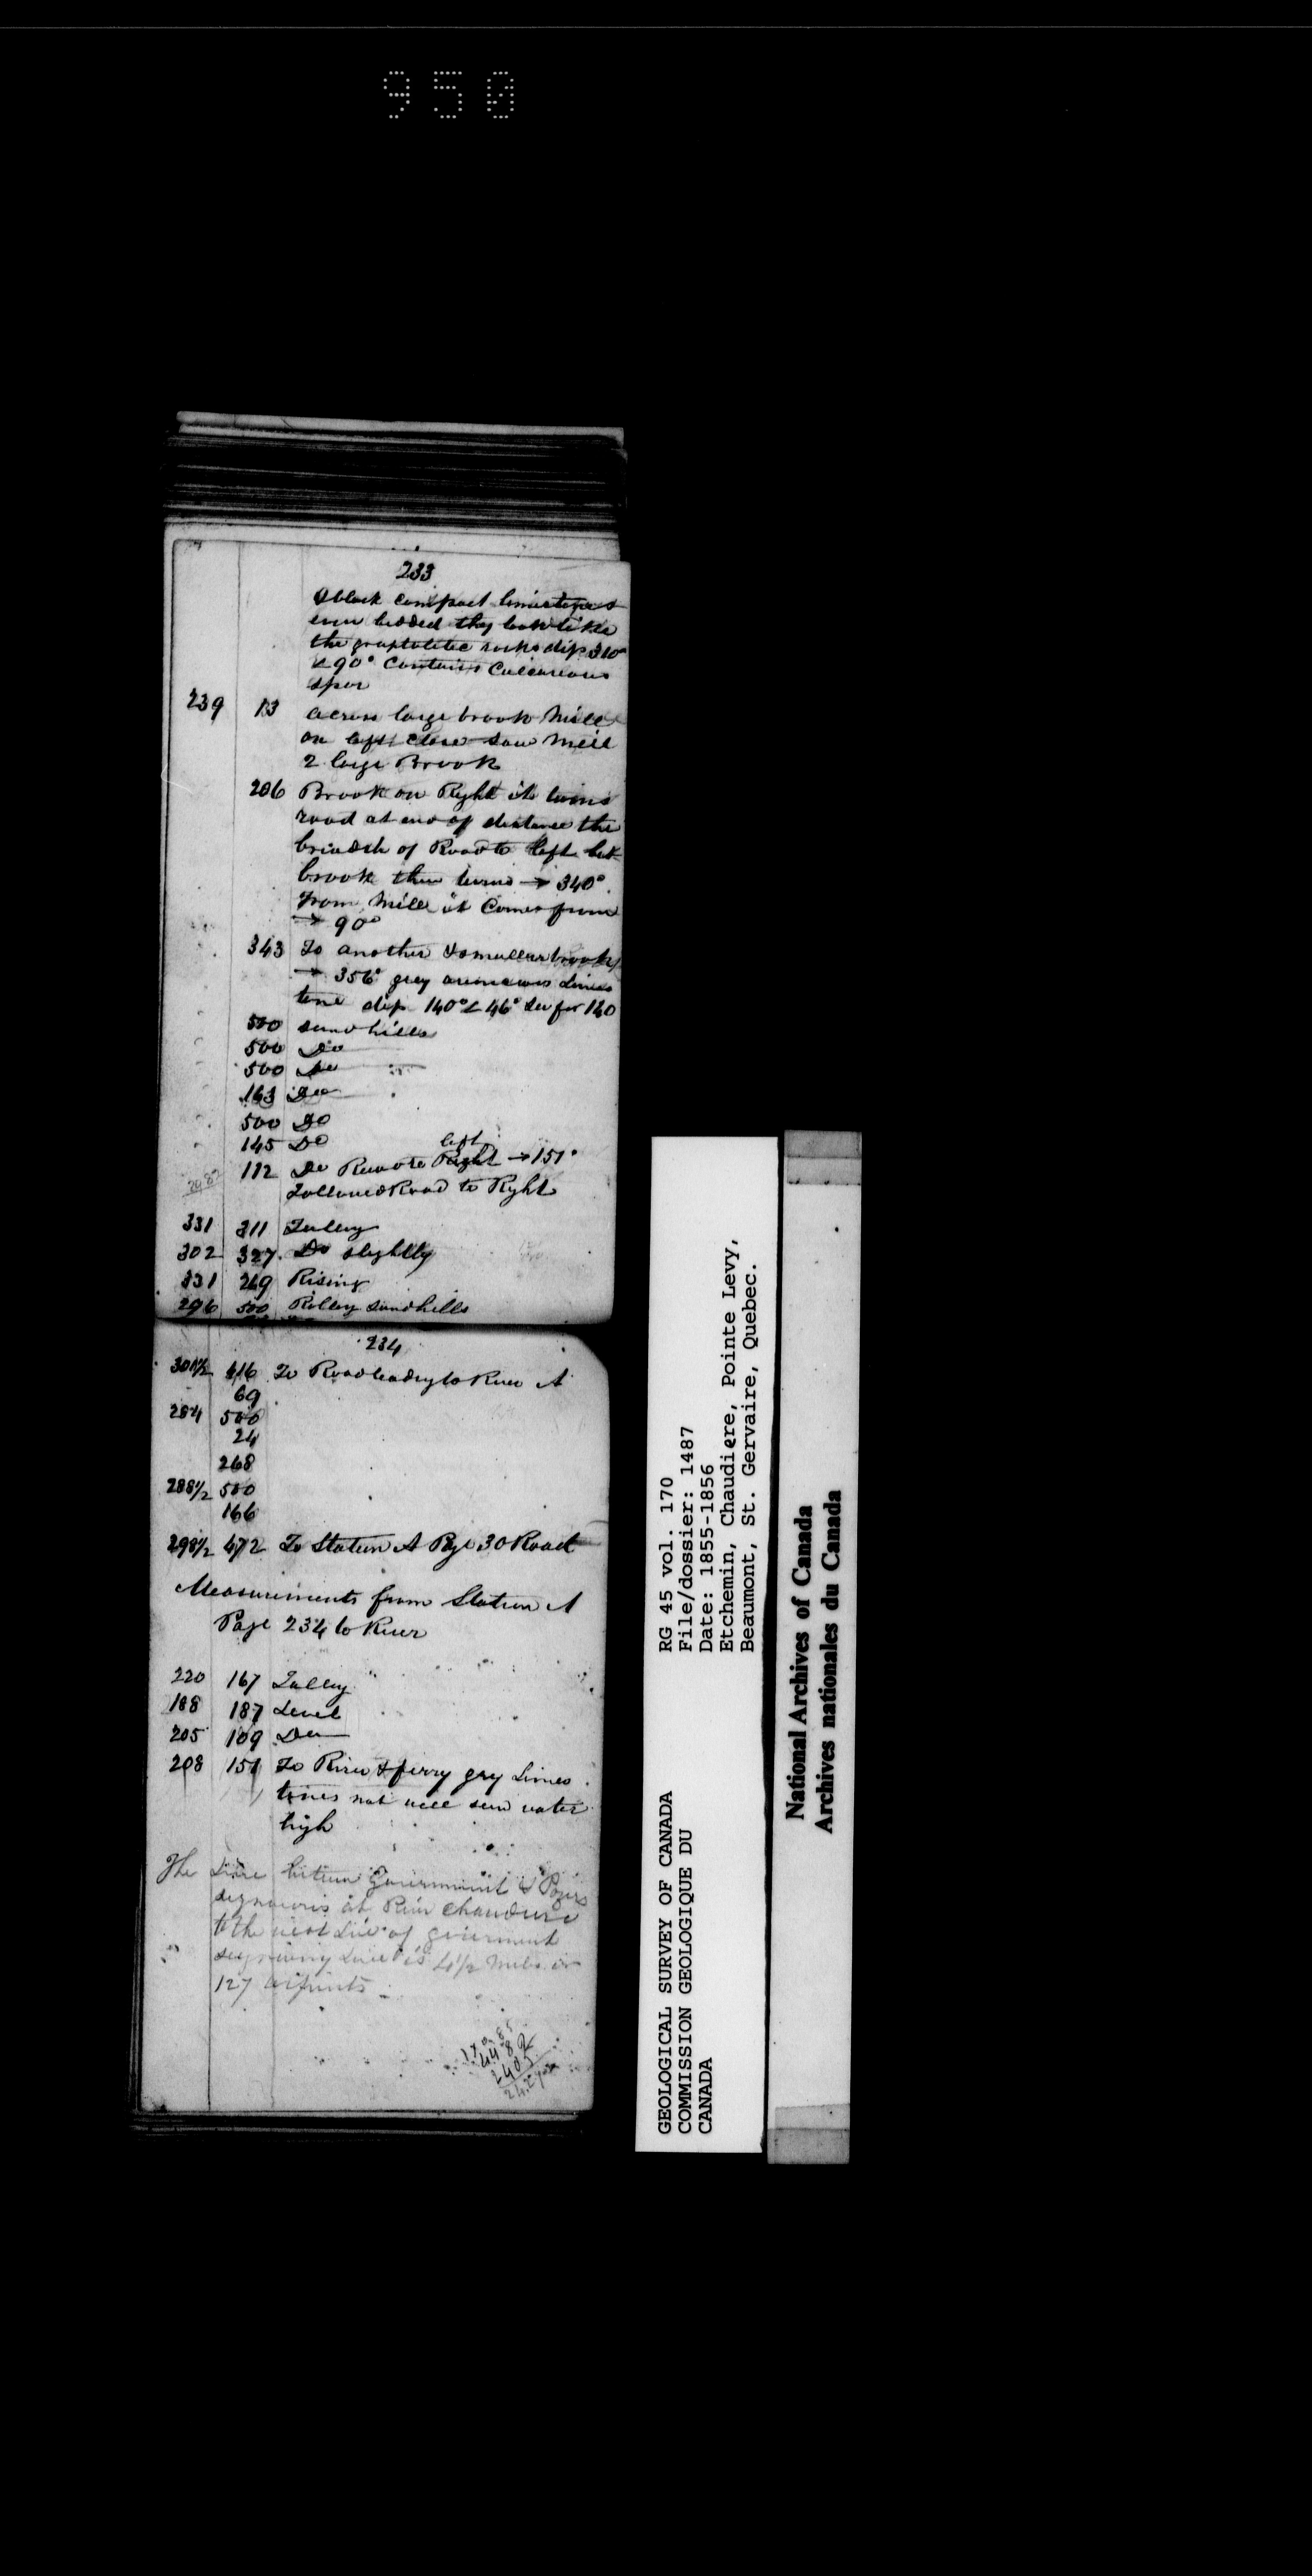 950
233
& black compact limestones &
even bedded they look like
the graptolitic rocks dip 310°
< 90° Contains Calcareous
spar
239 13 across large brook Mill
on left close saw mill
2 large Brook
206 Brook on Right it turns
road at end of distance the
breadth of Road to left but
brook then turns → 340°.
From Mill it Comes from
→ 90°
343 To another & smaller brook
→ 356° grey Limes
tone dip 140° < 46° for 160
500 sand hills
500 Do
500 Do
163 Do
500 Do
145 Do
left
112 Do Road to Right → 151°
followed Road to Right
331 311 Falling
302 327 Do slightly
331 269 Rising
296 500 sandhills
234
301½ 416 To Road leading to River A
69
284 500
24
268
288½ 500
166
298½ 472 To Station A Page 30 Road
Measurements from Station A
Page 234 to River
220 167 Falling
188 187 Level
205 109 Do
208 151 To River & ferry grey Limes
tones not well seen water
high
The Line between Government &
at River Chaudiere
to the next Line of
Line is 4½ miles or
127 arpents
GEOLOGICAL SURVEY OF CANADA
COMMISSION GEOLOGIQUE DU
CANADA
RG 45 vol. 170
File/dossier: 1487
Date: 1855-1856
Etchemin, Chaudiere, Pointe Levy,
Beaumont, St. Gervaire, Quebec.
National Archives of Canada
Archives nationales du Canada